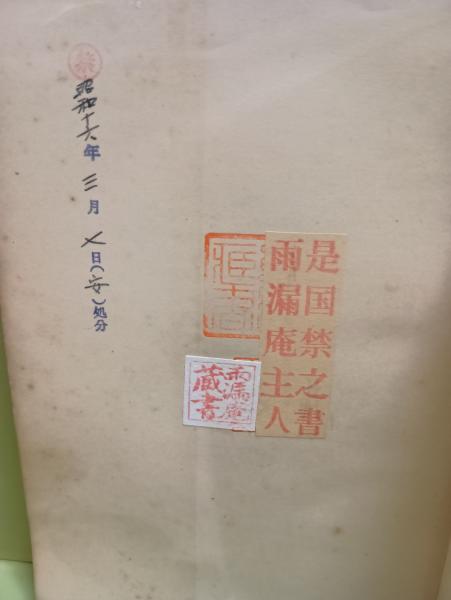 是国禁之書
雨漏庵主人
雨漏庵
蔵書
禁
昭和十六年三月七日(安)処分